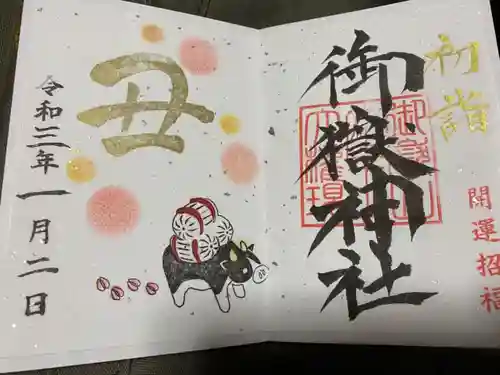 初詣
開運招福
御嶽神社
丑
令和三年一月二日